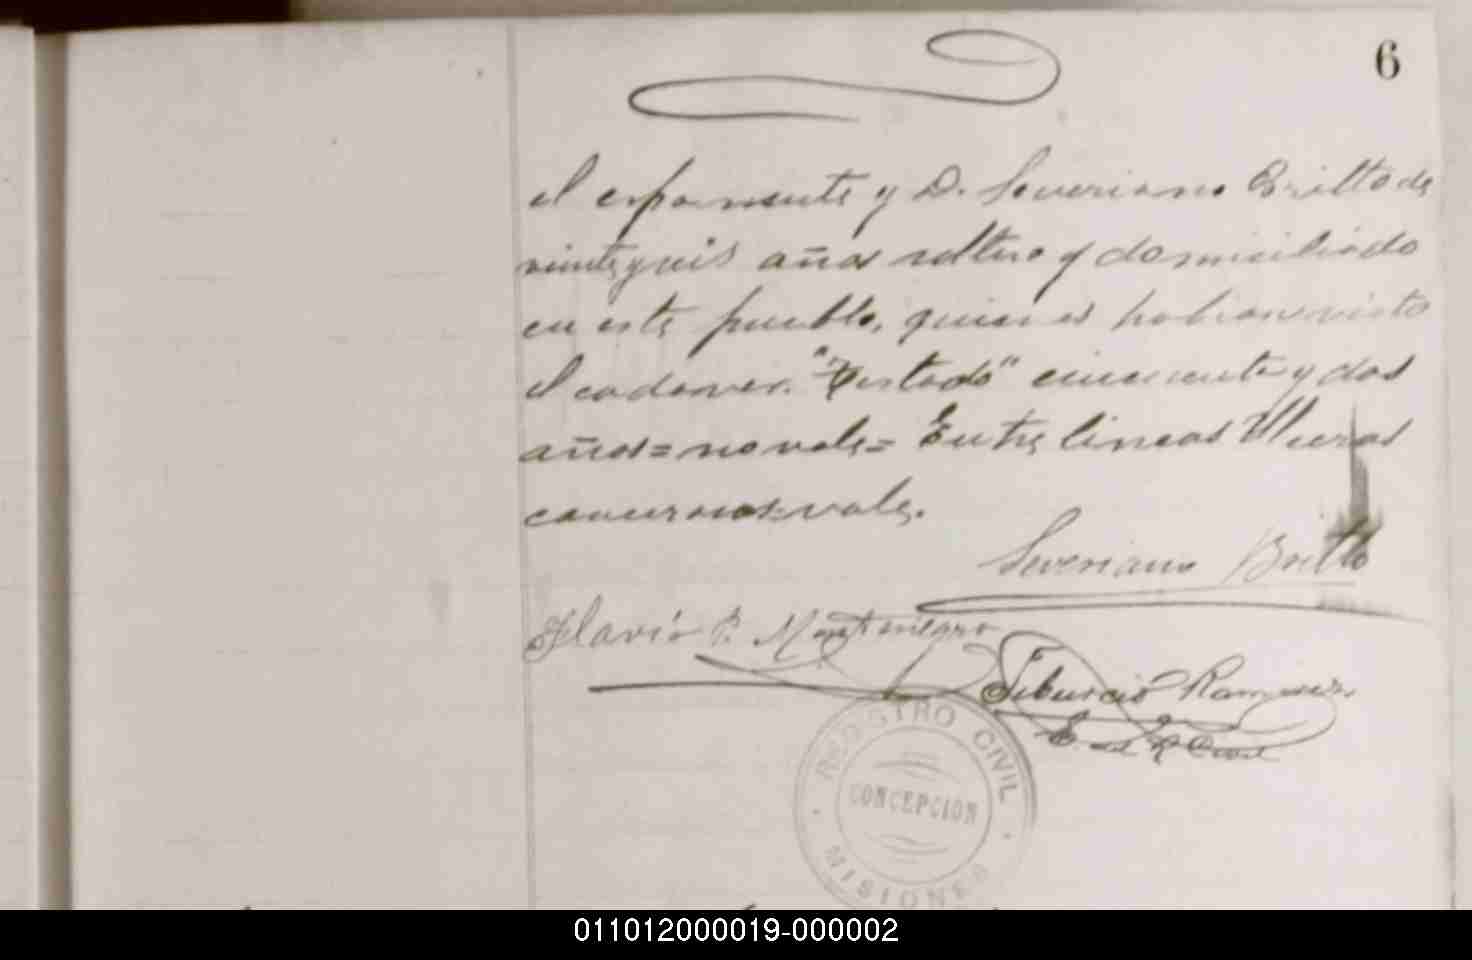 6
el exponente y D. Severiano Britto de
veinteyseis años soltero y domiciliado
en este pueblo, quienes habian visto
el cadaver. "Testado" cincuenta y dos
años=no vale= Entre lineas
vale.
Severiano Britto
Flavio P. Montenegro
Tiburcio Ramirez
REGISTRO CIVIL
CONCEPCION
MISIONES
011012000019-000002